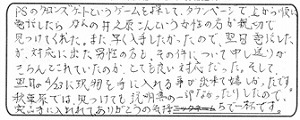 PSのクロンズゲートというゲームを探して、タウンページで上から順に
電話したら カんの井之原こんという女性の方が親せつで
見つけてくれた。また、早く入手したかったので、翌日電話した
が、対応に出た男性の方も、その件について申し送りが
きちんとされていたのか、とても良い対応だった。そして、
翌日の4/23に現物を手に入れる事が出来て嬉しかったです
秋葉原では、見つけても説明書の一部なかったりしたので、
実に手に入れれてありがとうの気持ちで一杯です。